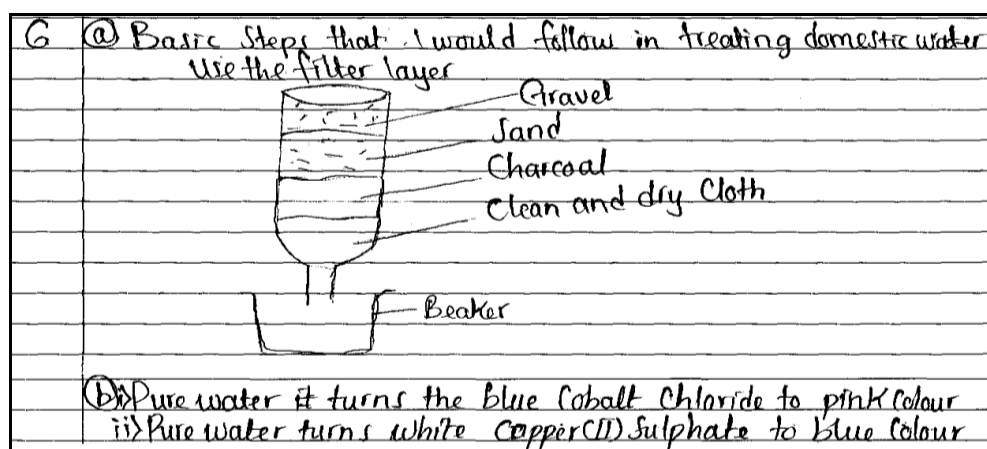 6 (a) Basic Steps that I would follow in treating domestic water
Use the filter layer
Gravel
Sand
Charcoal
Clean and dry Cloth
Beaker
(b) i) Pure water it turns the blue Cobalt Chloride to pink Colour
ii) Pure water turns white Copper (II) Sulphate to blue Colour